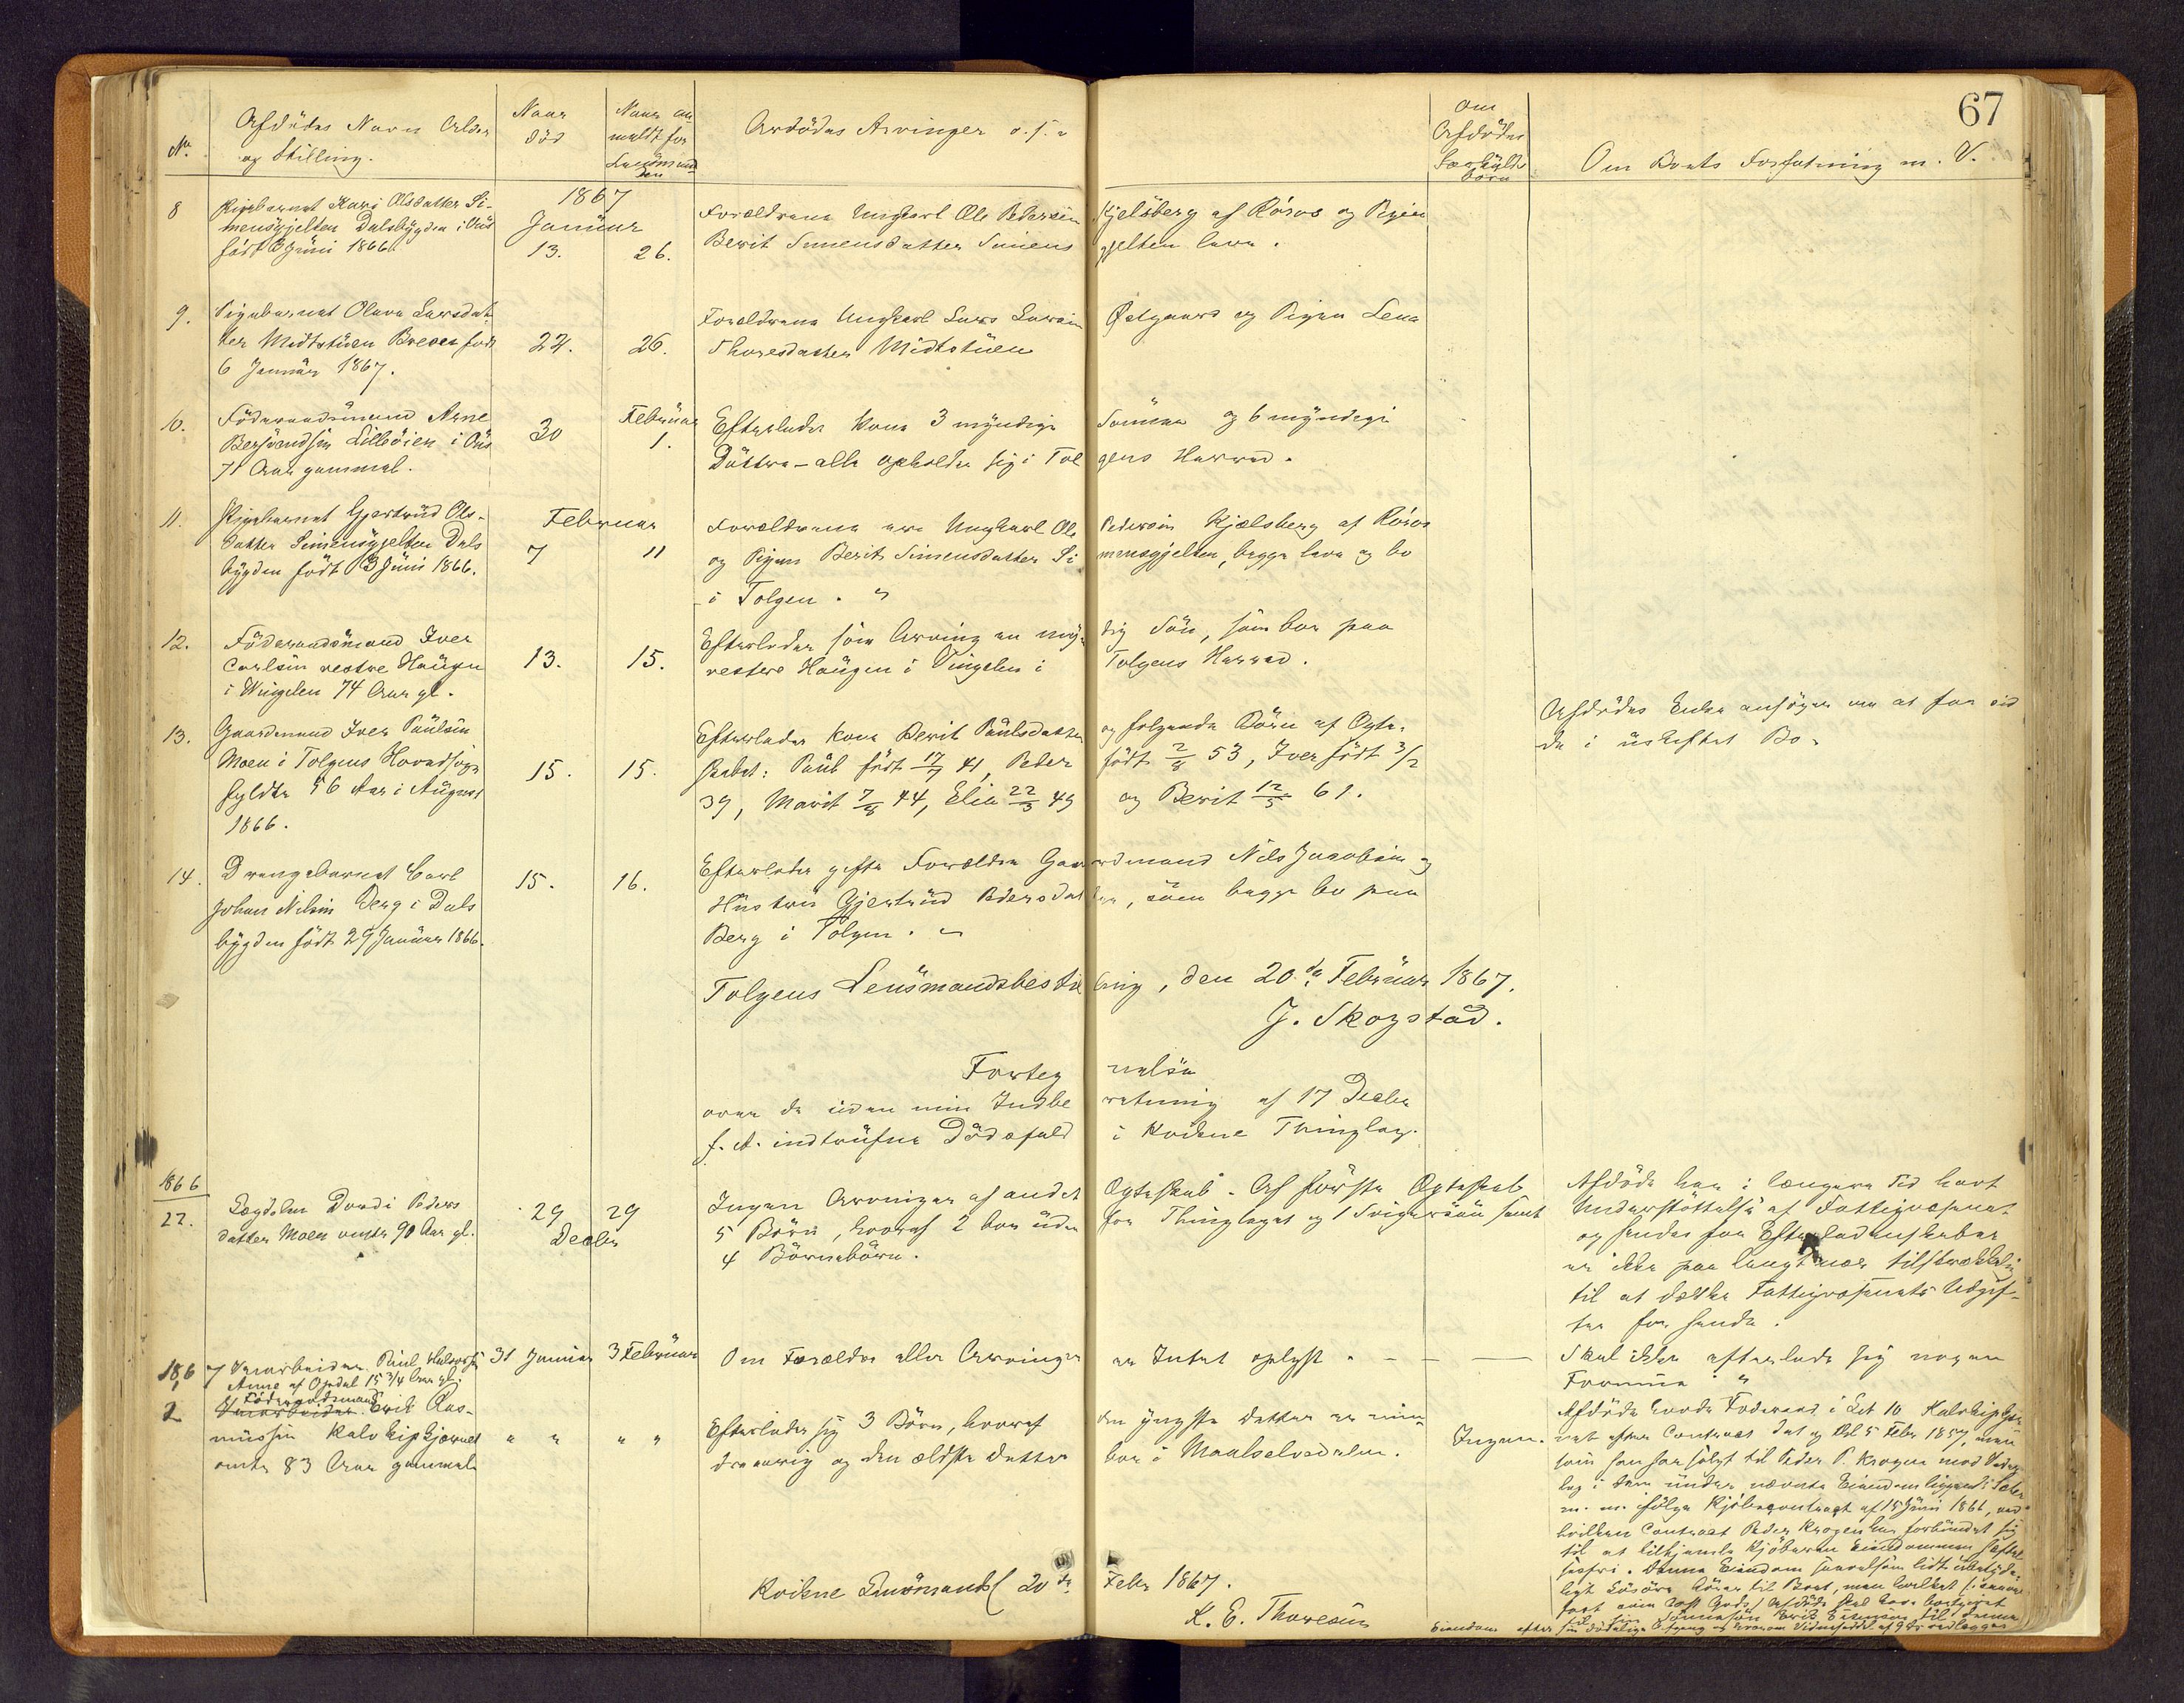 67
No.
Afdødes Navn Alder
og Stilling.
Naar
død
Naar an
meldt for
Lensmand
den
Afdødes Arvinger o. s. v
Om
Afdødes
Særkulds
børn
Om Boets Forfatning m. V.
1867
8
Pigebarnet Kari Olsdatter Si-
mensgjelten Dalsbygden i Øus
født 3 Juni 1866.
Januar
13.
26.
Forældrene Ungkarl Ole Pedersen Kjelsberg af Røros og Pigen
Berit Simensdatter Simens gjelten leve.
9.
Pigebarnet Olava Larsdat
ter Midtstuen Breven født
6 Januar 1867.
22.
26.
Forældrene Ungkarl Lars Larsen Østgaard og Pigen Lena
Thoresdatter Midtstuen
10.
Føderaadsmand Arne
Bersvendsen Lilleøien i Øus
71 Aar gammel.
30
Februar
1.
Efterlader Kone 3 myndige Sønner og 6 myndige
Døttre - alle opholder sig i Tol gens Herred.
11.
Pigebarnet Gjertrud Ols-
datter Simensgjelten Dals
bygden født 3 Juni 1866.
Februar
7
11
Forældrene ere Ungkarl Ole Pedersen Kjælsberg af Røros
og Pigen Berit Simensdatter Si mensgjelten, begge leve og bo
i Tolgen. "
12.
Føderaadsmand Iver
Carlsen vestre Haugen
i Vingelen 74 Aar gl.
13.
15.
Efterlader som Arving en myn dig Søn, som bor paa
vestre Haugen i Vingelen i Tolgens Herred.
13.
Gaardmand Iver Paulsen
Moen i Tolgens Hovedsogn
fyldte 56 Aar i August
1866.
15.
15.
Efterlader Kone Berit Paulsdatter og følgende Børn af Ægte-
skabet: Paul født 17/7 41, Peder født 2/8 53, Iver født 3/2
39, Marit 7/8 44, Elie 22/3 49 og Berit 12/5 61.
Afdødes Enke ansøger om at faa sid
de i uskiftet Bo.
14.
Drengebarnet Carl
Johan Nilsen Berg i Dals
bygden født 29 Januar 1866.
15.
16.
Efterlader gifte Forældre Gaardmand Nils Jacobsen og
Hustru Gjertrud Pedersdatter, som begge bo paa
Berg i Tolgen. "
Tolgens Lensmandsbestilling, den 20de Februar 1867.
J. Skogstad.
Forteg nelse
over de siden min Indbe retning af 17 Decbr
f. A. indtrufne Dødsfald i Kvikne Thinglag.
1866
22.
Lægdslem Dordi Peders
datter Moen omtr 90 Aar gl.
29
29
Decbr
Ingen Arvinger af andet Ægteskab. Af første Ægteskab
5 Børn, hvoraf 2 bor uden for Thinglaget og 1 Svigersøn samt
4 Børnebørn.
Afdøde har i længere Tid havt
Understøttelse af Fattigvæsenet
og hendes faa Efterladenskaber
er ikke paa langt nær tilstrækkelig
til at dække Fattigvæsenets Udgif-
ter for hende.
1867
1
Paul Halvorsen
Aune af Opdal 15 3/4 Aar gl.
31 Januar
3 Februar
Om Forældre eller Arvinger er Intet oplyst. -
Skal ikke efterlade sig nogen
Formue "
2
Føderaadsmand
Erik Ras-
mussen Kalvkipkjærnet
omtr 83 Aar gammel
" "
" "
Efterlader sig 3 Børn, hvoraf den yngste Datter er min
dreaarig og den ældste Datter bor i Maalselvedalen.
Ingen.
Afdøde havde Føderaad i
net efter Contract dat og 5 Febr 1857, men
som han har solgt til Peder P. Krogen mod
Kjøbecontract af 15 Juni 1866, ved
hvilken Contract Peder Krogen har forbundet sig
til at
Denne Eiendom saavelsom lidt ubetyde-
ligt Løsøre hører til Boet, men
Sønnesøn Erik
Eiendom efter sin dødelige Afgang
Kvikne Lensmandsb 20de Febr 1867.
K. E. Thoresen